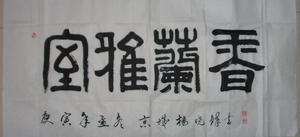 香蘭雅室
庚寅年孟冬京城楊曉鋒書